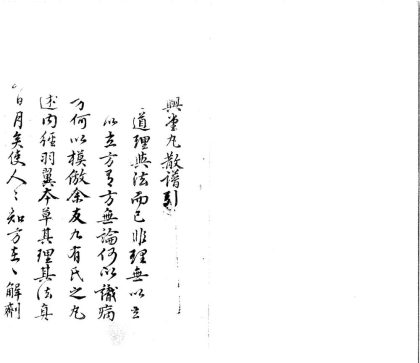 興堂丸散譜引
道理與法而已非理無以立
以立方有方無論何以識病
乃何以模倣余友九有氏之丸
述内經羽翼本草其理其法真
日月矣使人〻知方立〻解劑